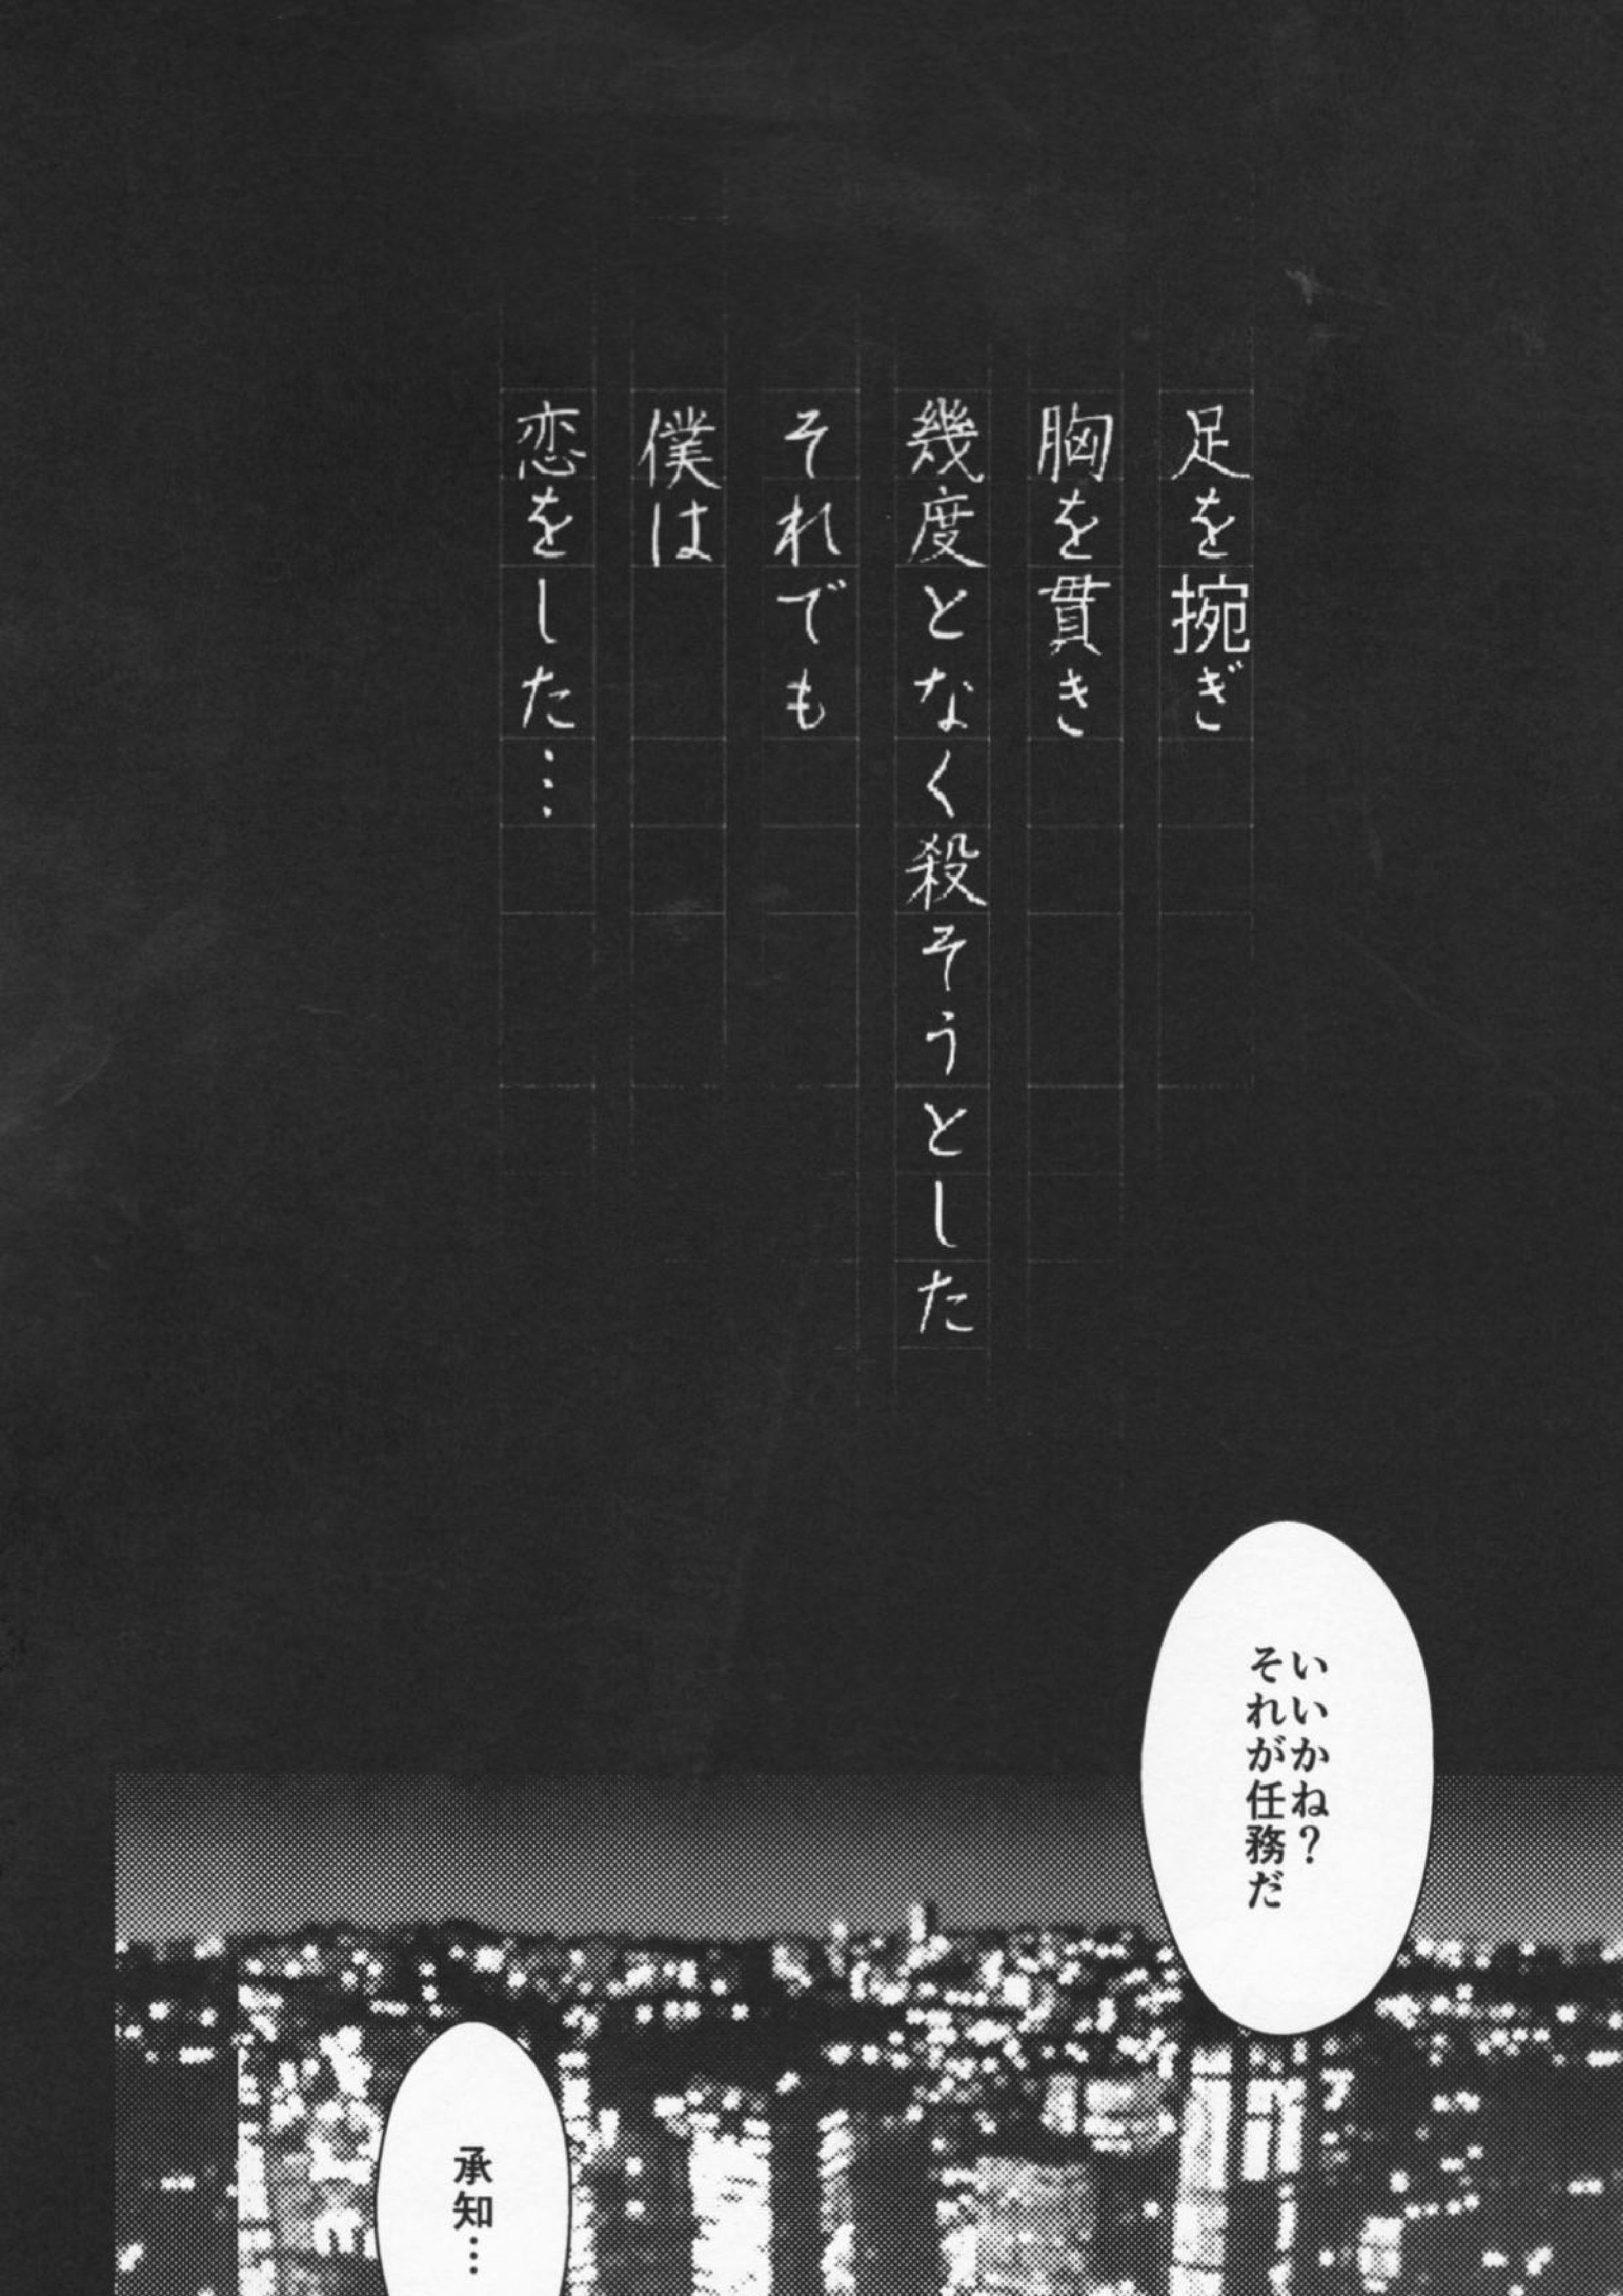 足を捥ぎ
胸を貫き
幾度となく殺そうとした
それでも
僕は
恋をした…
いいかね？
それが任務だ
承知…